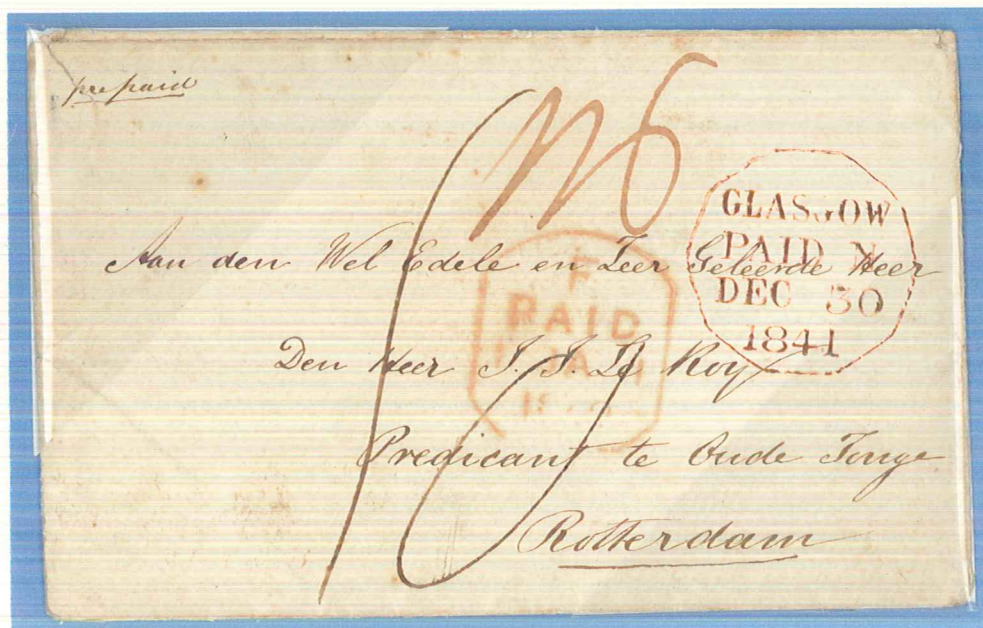 prepaid
GLASGOW
PAID N
DEC 30
1841
Aan den Wel Edele en Zeer Geleerde Heer
PAID
Den Heer J. J. Le Roy
Predicant te Oude Tonge
Rotterdam